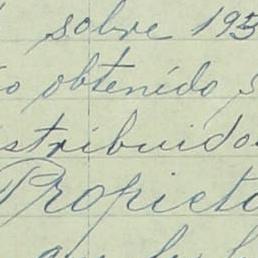 sobre 195
obtenido s
stribuido
Propieta